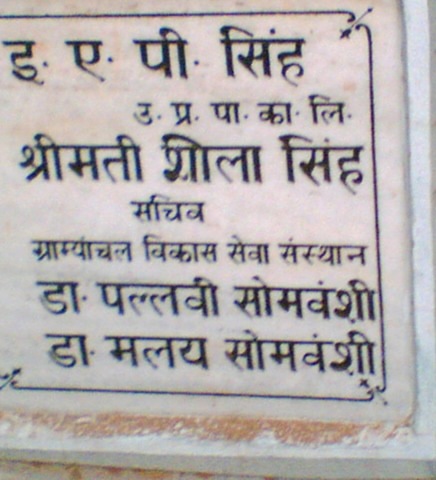 इ. ए. पी. सिंह
उ. प्र. पा. का. लि.
श्रीमती शीला सिंह
सचिव
ग्राम्यांचल विकास सेवा संस्थान
डा. पल्लवी सोमवंशी
डा. मलय सोमवंशी